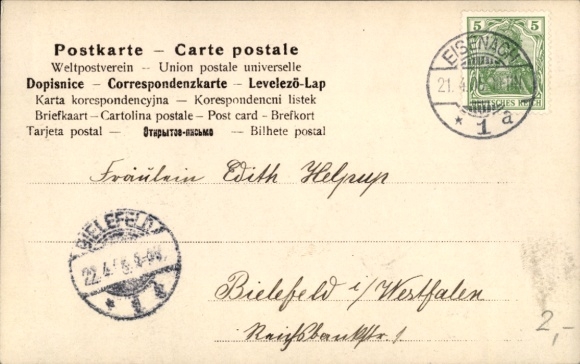 Postkarte – Carte postale
Weltpostverein – Union postale universelle
Dopisnice - Correspondenzkarte - Levelező-Lap
Karta korespondencyjna - Korespondencni listek
Briefkaart - Cartolina postale - Post card - Brefkort
Tarjeta postal – Открытое-письмо – Bilhete postal
5 5
DEUTSCHES REICH
EISENACH
21.4.06
* 1 a
Fräulein Edith Helpup
BIELEFELD
22.4.06.8-9V.
* 1
Bielefeld i/Westfalen
Reichsbankstr. 1
2,-